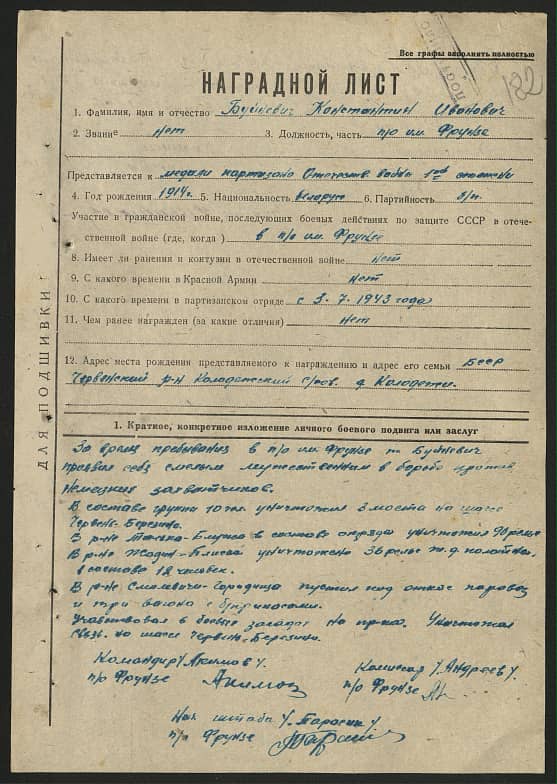 Все графы заполнять полностью
НАГРАДНОЙ ЛИСТ
1. Фамилия, имя и отчество Буйневич Константин Иванович
2. Звание нет 3. Должность, часть п/о им. Фрунзе
Представляется к медали партизана Отечеств. войны 1ой степени
4. Год рождения 1914г. 5. Национальность белорус 6. Партийность б/п.
Участие в гражданской войне, последующих боевых действиях по защите СССР в отече-
ственной войне (где, когда) в п/о им. Фрунзе
8. Имеет ли ранения и контузии в отечественной войне нет
9. С какого времени в Красной Армии нет
10. С какого времени в партизанском отряде с 3.7.1943 года
11. Чем ранее награжден (за какие отличия) нет
12. Адрес места рождения представляемого к награждению и адрес его семьи БССР
Червенский р-н Колодежский с/сов. д. Колодежи.
ДЛЯ ПОДШИВКИ
1. Краткое, конкретное изложение личного боевого подвига или заслуг
За время пребывания в п/о им. Фрунзе т. Буйневич
проявил себя смелым мужественным в борьбе против
немецких захватчиков.
В составе группы 10 чел. уничтожил 3 моста на шоссе
Червень-Березино.
В р-не в составе отряда уничтожил 90 рельс
В р-не Жодин- уничтожено 36 рельс ж.д. полотна.
в составе 12 человек.
В р-не Смолевичи-Городище пустил под откос паровоз
и три вагона с боеприпасами.
Участвовал в боевых засадах на врага. Уничтожал
связь на шоссе Червень-Березино.
Командир /Акимов/
п/о Фрунзе
Комиссар /Андреев/
п/о Фрунзе
Нач штаба /Тарасик/
п/о Фрунзе